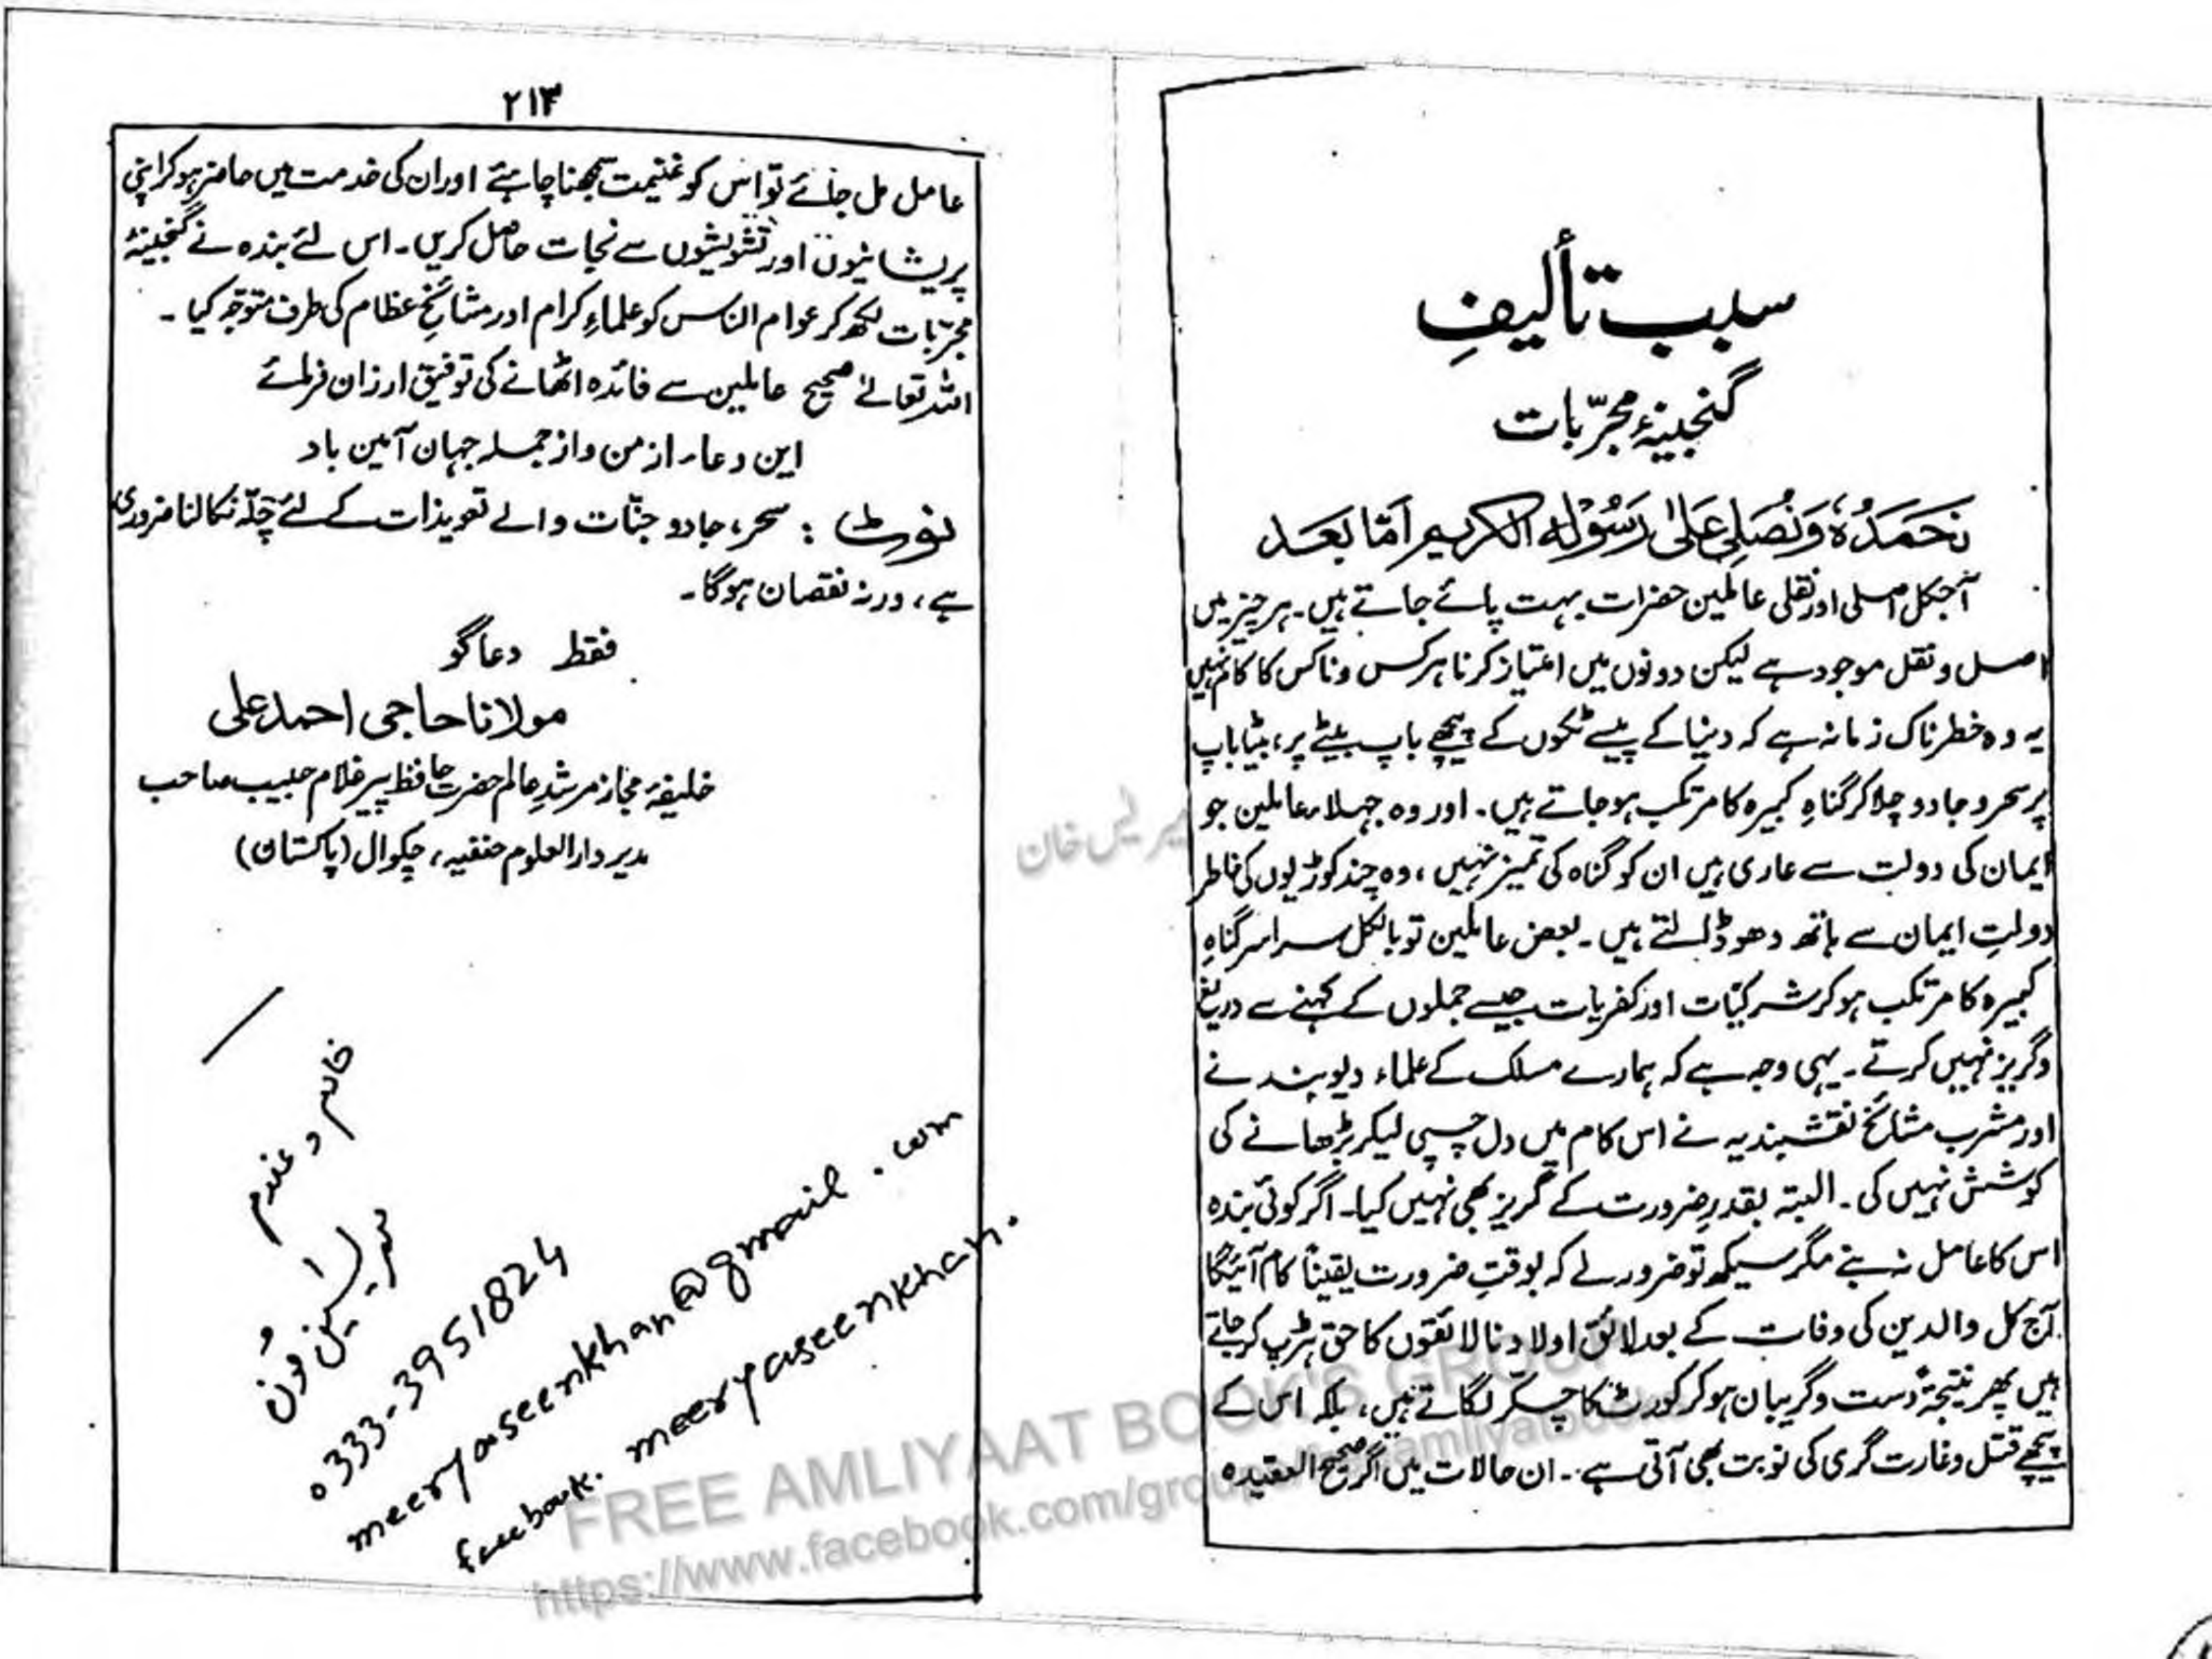 سبب تألیفِ
گنجینۂ مجرّبات
نَحمَدُہٗ وَنُصَلِی عَلیٰ رَسُوْلِہِ الکریم اَمّا بَعَد
آجکل اصلی اور نقلی عاملین حضرات بہت پائے جاتے ہیں۔ ہر چیز میں
اصل و نقل موجود ہے لیکن دونوں میں امتیاز کرنا ہر کس و ناکس کا کام نہیں
یہ وہ خطرناک زمانہ ہے کہ دنیا کے پیسے ٹکوں کے پیچھے باپ بیٹے پر، بیٹا باپ
پر سحر و جادو چلا کر گناہِ کبیرہ کا مرتکب ہو جاتے ہیں۔ اور وہ جہلاء عاملین جو
ایمان کی دولت سے عاری ہیں ان کو گناہ کی تمیز نہیں، وہ چند کوڑیوں کی خاطر
دولتِ ایمان سے ہاتھ دھو ڈالتے ہیں۔ بعض عاملین تو بالکل سراسر گناہِ
کبیرہ کا مرتکب ہو کر شرکیّات اور کفریات جیسے جملوں کے کہنے سے دریغ
و گریز نہیں کرتے۔ یہی وجہ ہے کہ ہمارے مسلک کے علماء دیوبند نے
اور مشرب مشائخ نقشبندیہ نے اس کام میں دل چسپی لیکر بڑھانے کی
کوشش نہیں کی۔ البتہ بقدرِ ضرورت کے گریز بھی نہیں کیا۔ اگر کوئی بندہ
اس کا عامل نہ بنے مگر سیکھ تو ضرور لے کہ بوقتِ ضرورت یقیناً کام آئیگا
آج کل والدین کی وفات کے بعد لائق اولاد نالائقوں کا حق ہڑپ کر جاتے
ہیں پھر نتیجۃً دست و گریبان ہو کر کورٹ کا چکّر لگاتے ہیں، بلکہ اس کے
پیچھے قتل و غارت گری کی نوبت بھی آتی ہے۔ ان حالات میں اگر صحیح العقیدہ
۲۱۳
عامل مل جائے تو اس کو غنیمت سمجھنا چاہئے اور ان کی خدمت میں حاضر ہو کر اپنی
پریشانیوں اور تشویشوں سے نجات حاصل کریں۔ اس لئے بندہ نے گنجینۂ
مجرّبات لکھ کر عوام الناس کو علماءِ کرام اور مشائخِ عظام کی طرف متوجّہ کیا۔
اللہ تعالےٰ صحیح عاملین سے فائدہ اٹھانے کی توفیق ارزان فرمائے
این دعاء از من و از جملہ جہان آمین باد
نوٹ : سحر، جادو جنّات والے تعویذات کے لئے چلّہ نکالنا ضروری
ہے، ورنہ نقصان ہوگا۔
فقط دعاگو
مولانا حاجی احمد علی
خلیفۂ مجاز مرشدِ عالم حضرت حافظ پیر غلام حبیب صاحب
مدیر دارالعلوم حنفیہ، چکوال (پاکستان)
0333-3951824
meeryaseenkhan@gmail.com
facebook. meeryaseenkhan.
FREE AMLIYAAT BOOK'S GROUP
https://www.facebook.com/groups/freeamliyatbooks